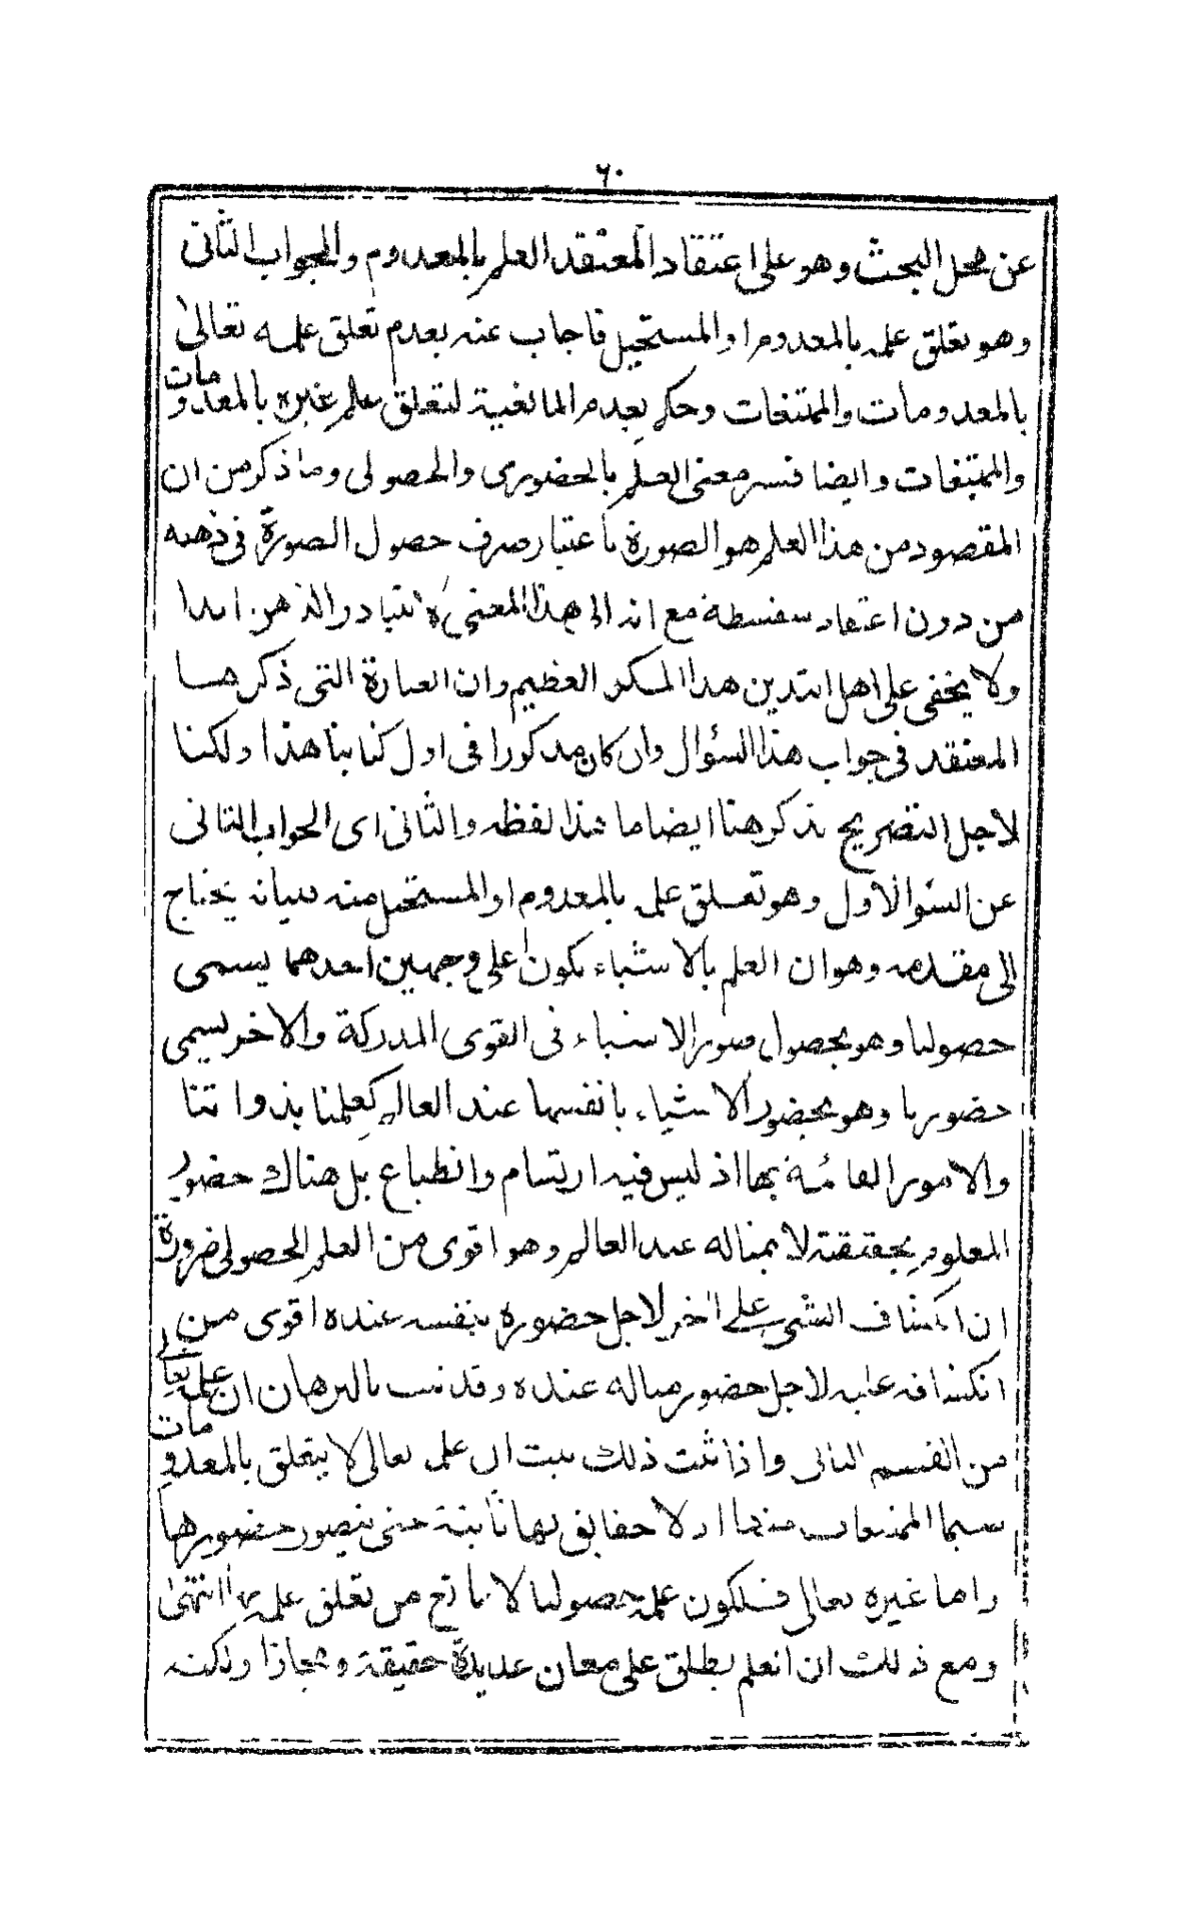 ٦٠
عن محل البحث وهو على اعتقاد المعتقد العلم بالمعدوم والجواب الثانى
وهو تعلق علمه بالمعدوم او المستحيل فاجاب عنه بعدم تعلق علمه تعالى
بالمعدومات والممتنعات وحكم بعدم المانعية لتعلق علم غيره بالمعدومات
والممتنعات وايضا فسر معنى العلم بالحضورى والحصولى وما ذكر من ان
المقصود من هذا العلم هو الصورة باعتبار صرف حصول الصورة فى ذهنه
من دون اعتقاد سفسطة مع انه الى هذا المعنى لا يتبادر الذهن ابدا
ولا يخفى على اهل التدين هذا المكر العظيم وان العبارة التى ذكرها
المعتقد فى جواب هذا السؤال وان كان مذكورا فى اول كتابنا هذا ولكنا
لاجل التصريح نذكر هنا ايضا ما هذا لفظه والثانى اى الجواب الثانى
عن السؤال الاول وهو تعلق علمه بالمعدوم او المستحيل منه بيانه يحتاج
الى مقدمه وهو ان العلم بالاشياء يكون على وجهين احدهما يسمى
حصوليا وهو بحصول صور الاشياء فى القوى المدركة والاخر يسمى
حضوريا وهو بحضور الاشياء بانفسها عند العالم كعلمنا بذواتنا
والامور القائمة بها اذ ليس فيه ارتسام وانطباع بل هناك حضور
المعلوم بحقيقته لا بمثاله عند العالم وهو اقوى من العلم الحصولى ضرورة
ان انكشاف الشى على اخر لاجل حضوره بنفسه عنده اقوى من
انكشافه عليه لاجل حضور مثاله عنده وقد ثبت بالبرهان ان علمه تعالى
من القسم الثانى واذا ثبت ذلك ثبت ان علمه تعالى لا يتعلق بالمعدومات
سيما الممتنعات منها اذ لا حقايق لها ثابتة حتى يتصور حضورها
واما غيره تعالى فلكون علمه حصوليا لا مانع من تعلق علمه بها انتهى
ومع ذلك ان العلم يطلق على معان عديدة حقيقة ومجازا ولكنه